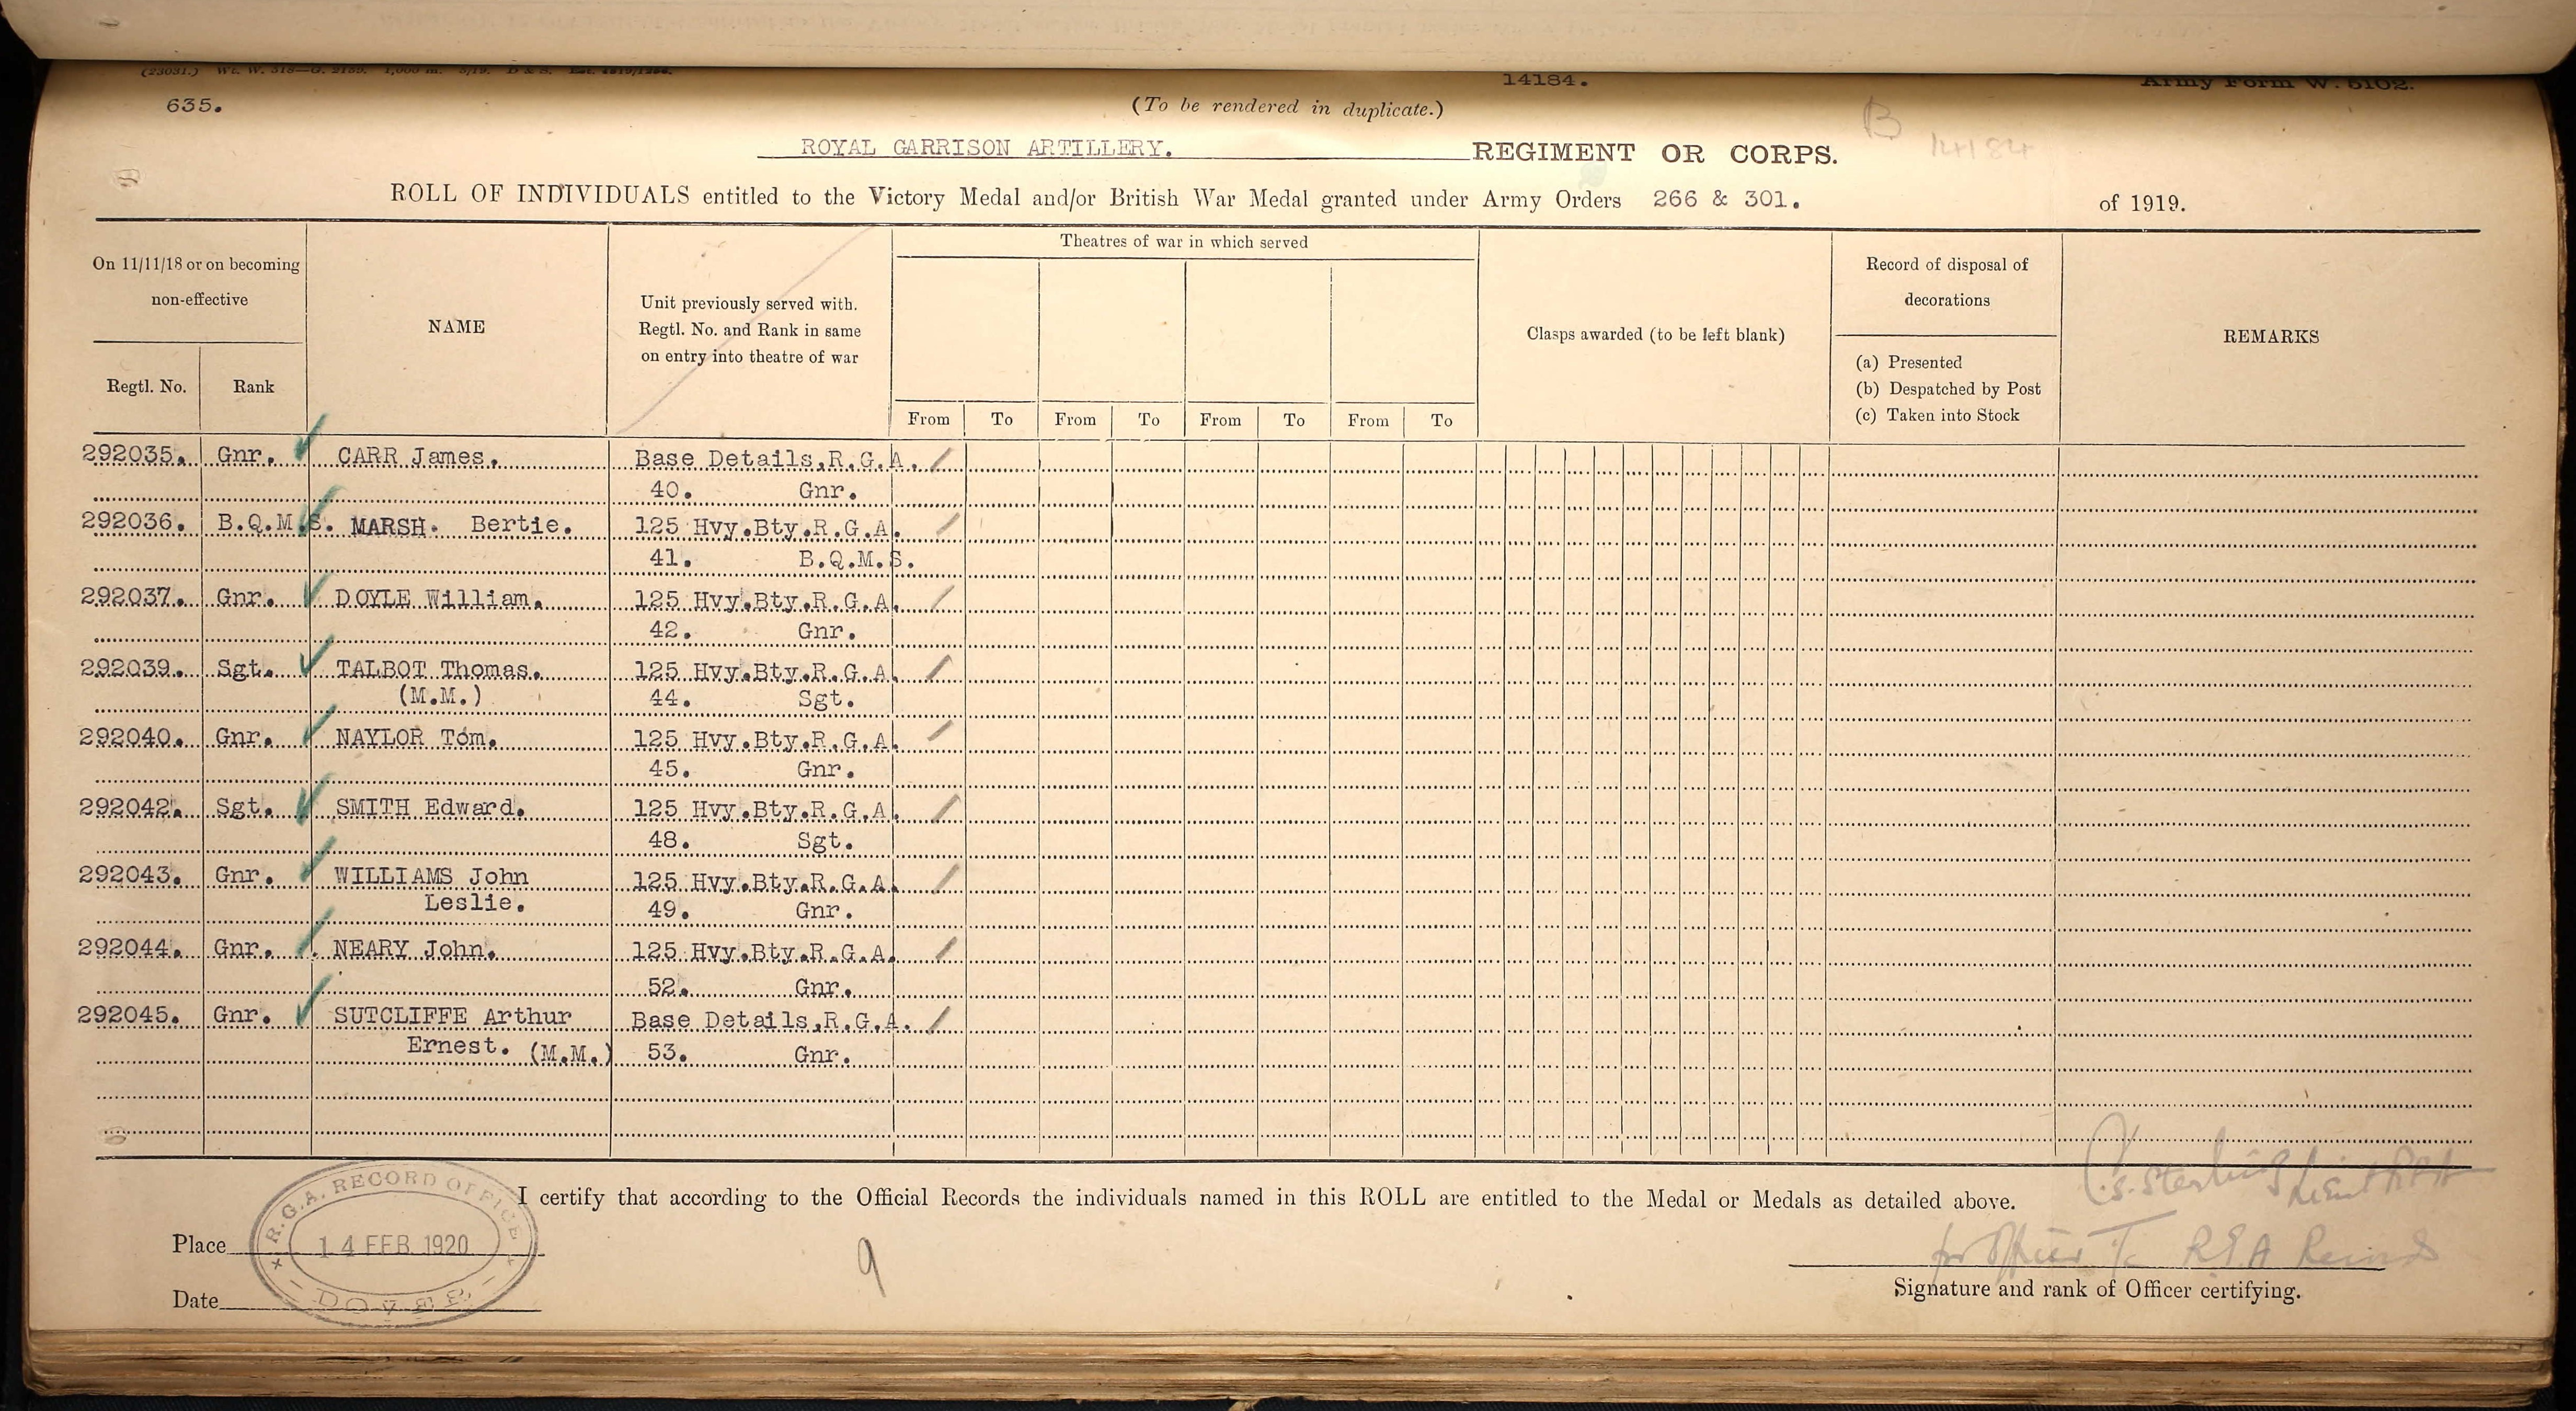 14184. Army Form W. 5102.
635. (To be rendered in duplicate.)
B 14184
ROYAL GARRISON ARTILLERY. REGIMENT OR CORPS.
ROLL OF INDIVIDUALS entitled to the Victory Medal and/or British War Medal granted under Army Orders 266 & 301. of 1919.
On 11/11/18 or on becoming non-effective
Regtl. No.
Rank
NAME
Unit previously served with. Regtl. No. and Rank in same on entry into theatre of war
Theatres of war in which served
From To From To From To From To
Clasps awarded (to be left blank)
Record of disposal of decorations
(a) Presented
(b) Despatched by Post
(c) Taken into Stock
REMARKS
292035. Gnr. CARR James. Base Details,R.G.A.
40. Gnr.
292036. B.Q.M.S. MARSH. Bertie. 125 Hvy.Bty.R.G.A.
41. B.Q.M.S.
292037. Gnr. DOYLE William. 125 Hvy.Bty.R.G.A.
42. Gnr.
292039. Sgt. TALBOT Thomas. 125 Hvy.Bty.R.G.A.
(M.M.) 44. Sgt.
292040. Gnr. NAYLOR Tom. 125 Hvy.Bty.R.G.A.
45. Gnr.
292042. Sgt. SMITH Edward. 125 Hvy.Bty.R.G.A.
48. Sgt.
292043. Gnr. WILLIAMS John 125 Hvy.Bty.R.G.A.
Leslie. 49. Gnr.
292044. Gnr. NEARY John. 125 Hvy.Bty.R.G.A.
52. Gnr.
292045. Gnr. SUTCLIFFE Arthur Base Details,R.G.A.
Ernest. (M.M.) 53. Gnr.
I certify that according to the Official Records the individuals named in this ROLL are entitled to the Medal or Medals as detailed above.
Lieut RGA
Place
R.G.A. RECORD OFFICE
14 FEB 1920
DOVER
9
for Officer I/c RGA Records
Date
Signature and rank of Officer certifying.